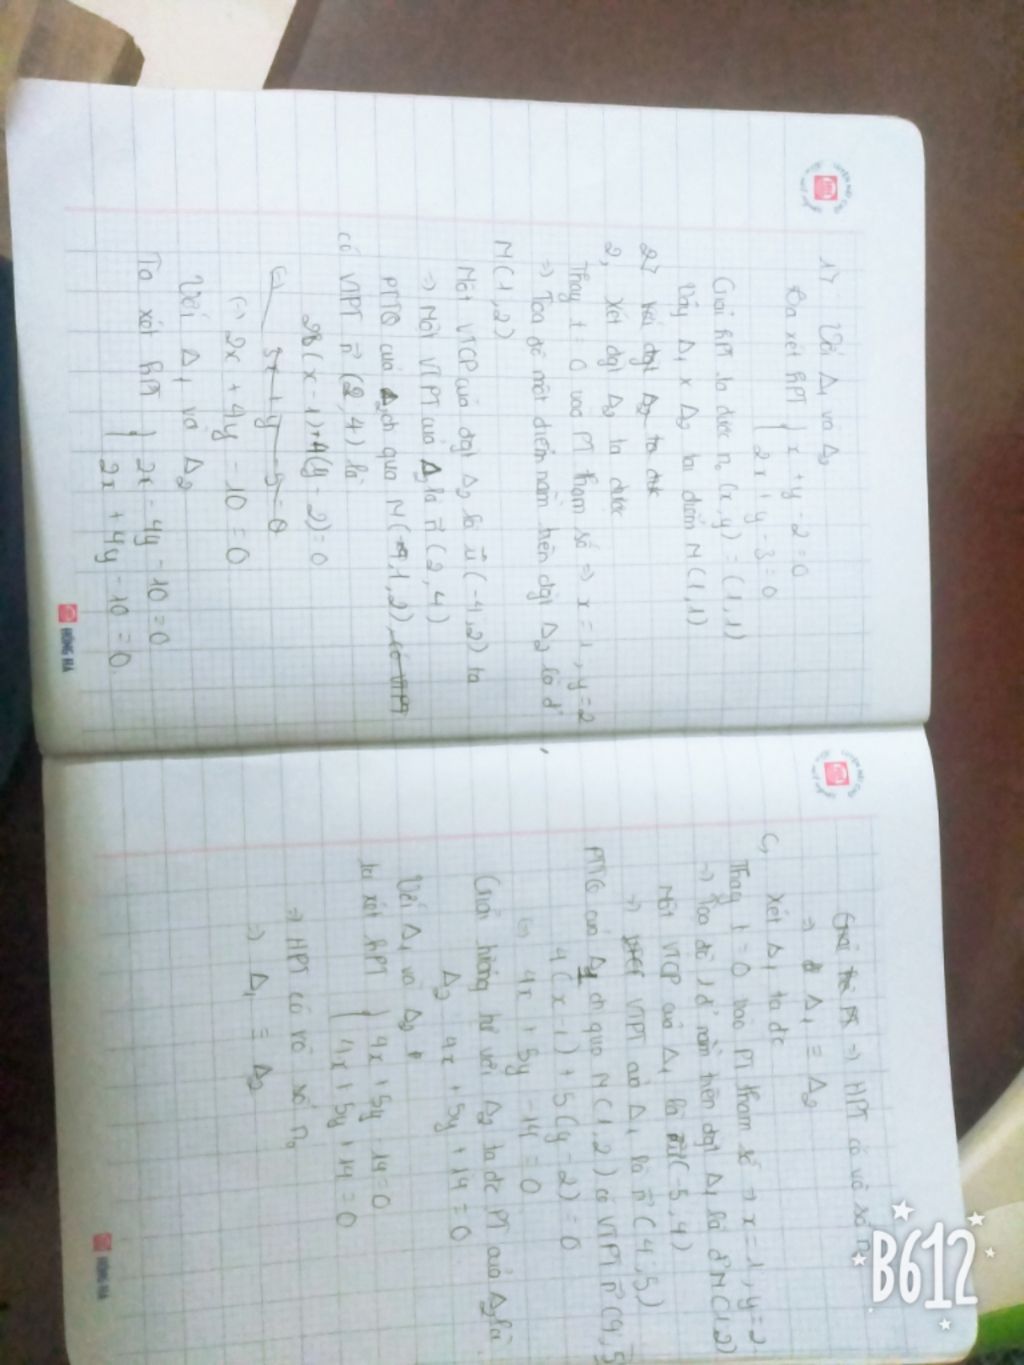 1> Với Δ1 và Δ2
Ta xét HPT { x + y - 2 = 0
2x + y - 3 = 0
Giải HPT ta được n0 (x, y) = (1, 1)
Vậy Δ1 x Δ2 tại điểm M(1,1)
2> Xét dgt Δ2 ta đck
2, Xét dgt Δ2 ta được
Thay t = 0 vào PT tham số => x = 1, y = 2
=> Tọa độ một điểm nằm trên dgt Δ2 là đ'
M(1,2)
Một VTCP của dgt Δ2 là u(-4,2) ta
=> Một VTPT của Δ2 là n(2,4)
PTTQ của Δ2 ch qua M(1,2), có VTPT
có VTPT n(2,4) là
2(x - 1) + 4(y - 2) = 0
(=) 5x + y - 5 = 0
(=) 2x + 4y - 10 = 0
Với Δ1 và Δ2
Ta xét HPT { 2x - 4y - 10 = 0
2x + 4y - 10 = 0
HỒNG HÀ
=> HPT có vô số n0
=> Δ1 ≡ Δ2
C, Xét Δ1 ta đc
Thay t = 0 vào PT tham số => x = 1, y = 2
=> Tọa độ 1 đ' nằm trên dgt Δ1 là đ' M(1,2)
Một VTCP của Δ1 là u(-5,4)
=> VTPT của Δ1 là n(4,5)
PTTQ của Δ1 ch qua M(1,2) có VTPT n(4,5)
4(x - 1) + 5(y - 2) = 0
(=) 4x + 5y - 14 = 0
Giải tương tự với Δ2 ta đc PT của Δ2 là
Δ2 4x + 5y + 14 = 0
Với Δ1 và Δ2
ta xét HPT { 4x + 5y - 14 = 0
4x + 5y + 14 = 0
=> HPT có vô số n0
=> Δ1 ≡ Δ2
HỒNG HÀ
B612